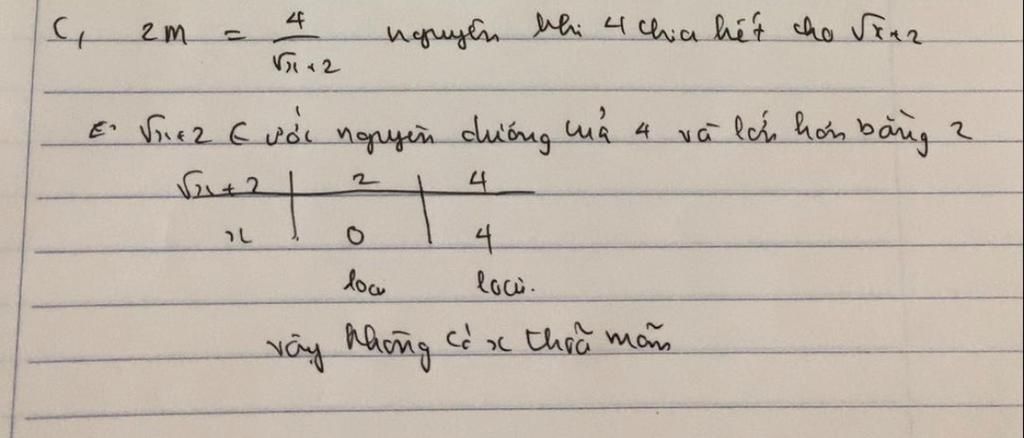 C, 2m = 4/(√x+2) nguyên khi 4 chia hết cho √x+2
E> √x+2 ∈ ước nguyên dương của 4 và lớn hơn bằng 2
√x+2 | 2 | 4
x | 0 | 4
loại loại.
vậy không có x thoả mãn